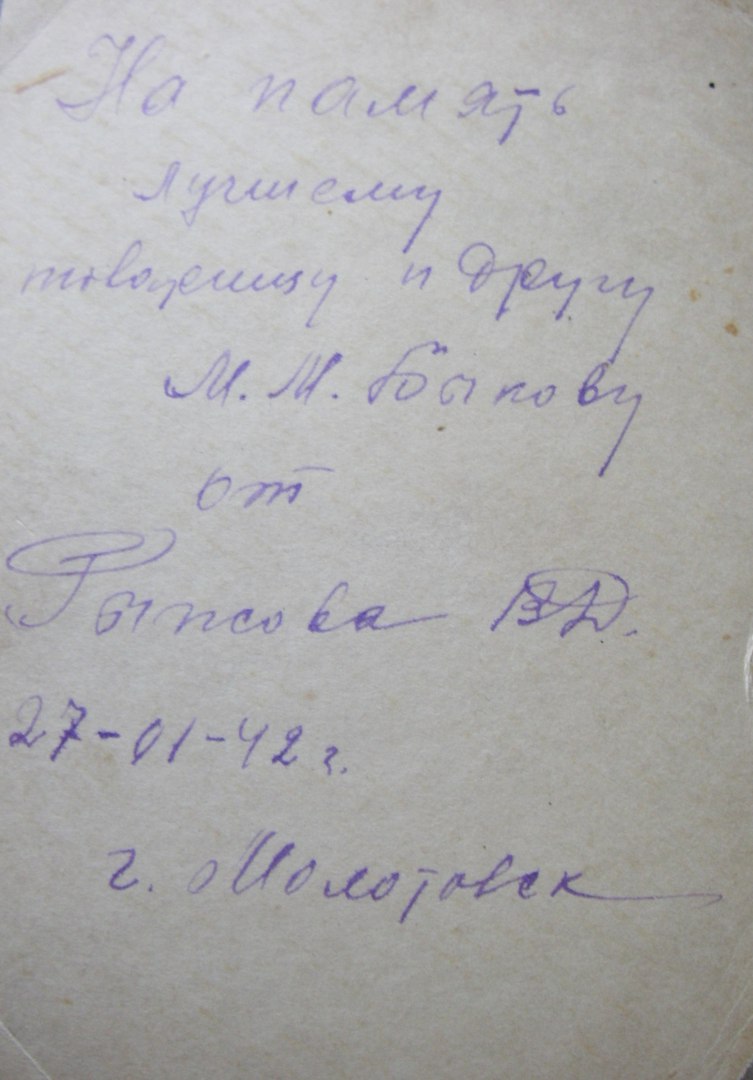 На память
лучшему
товарищу и другу
М. М. Быкову
от
Рыжова ВД.
27-01-42 г.
г. Молотовск